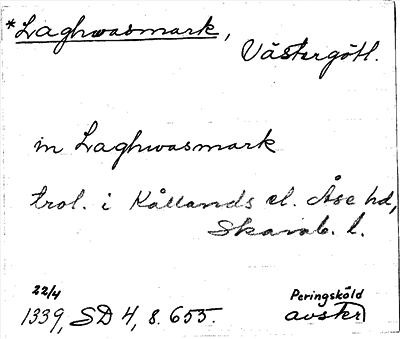 *Laghwasmark,
Västergötl.
in Laghwasmark
trol. i Kållands el. Åse hd,
Skarab. l.
22/4
1339, SD 4, s. 655.
Peringsköld
avskr